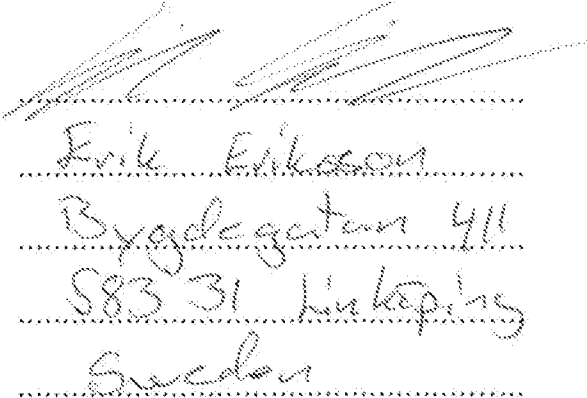 Erik Eriksson
Bygdegatan 411
583 31 Linköping
Sweden